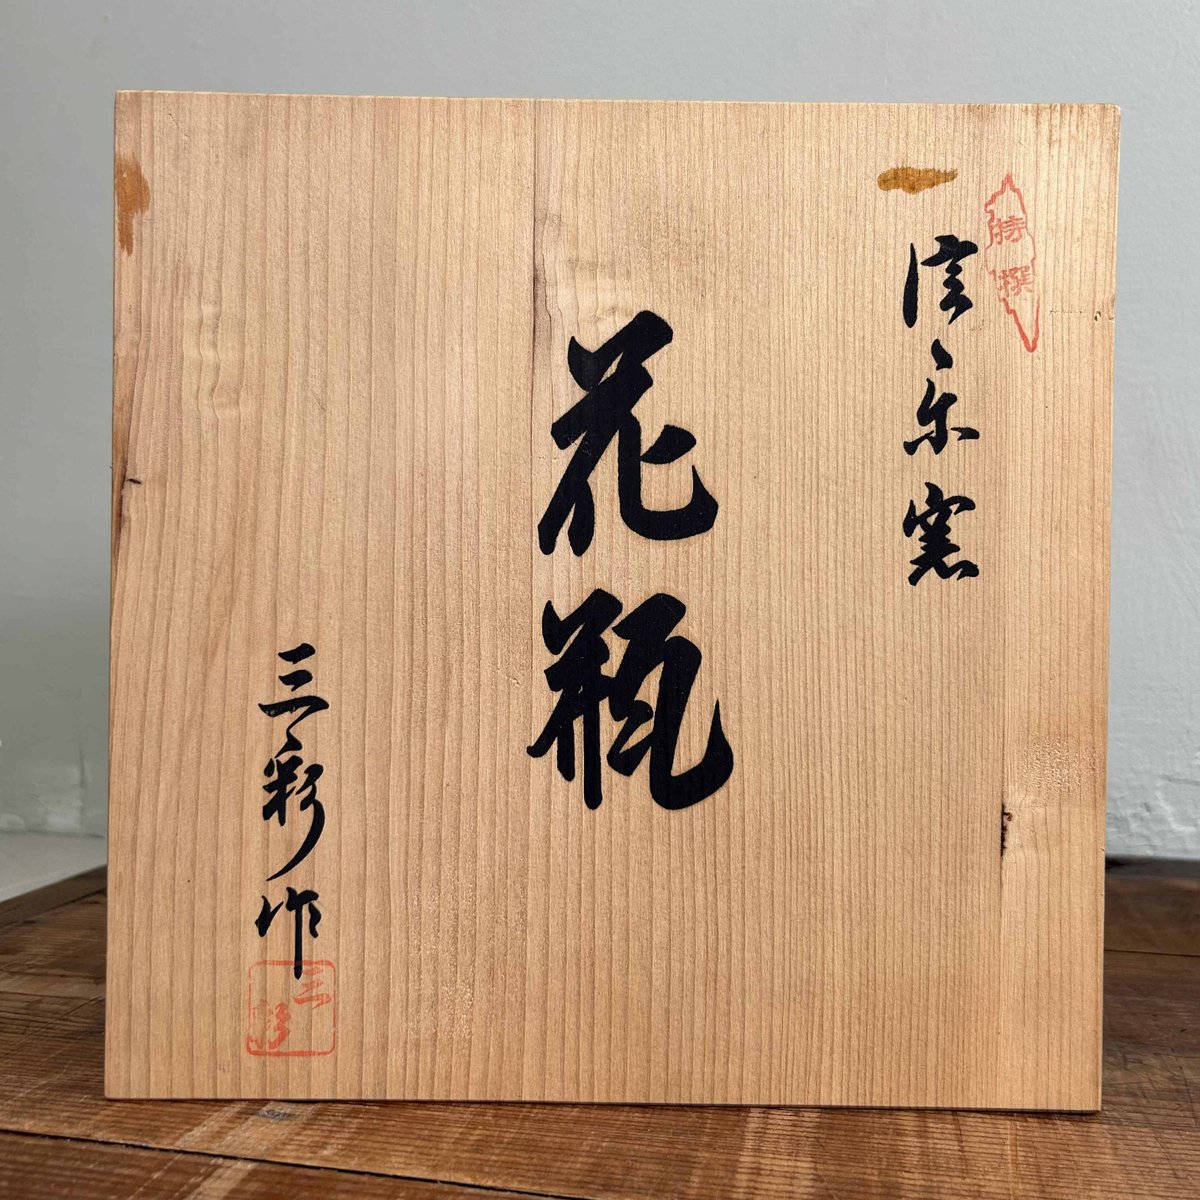 特撰
信楽窯
花瓶
三彩作
三彩